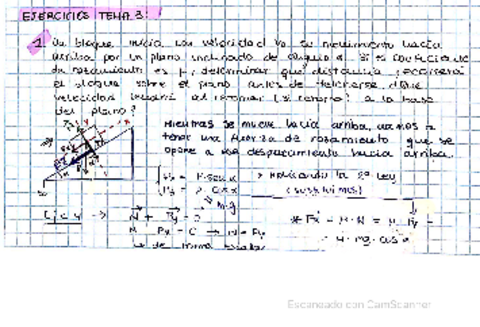 EJERCICIOS TEMA 3:
1. Un bloque inicia con velocidad V₀ su movimiento hacia
arriba por un plano inclinado de ángulo α. Si el coeficiente
de rozamiento es μ, determinar que distancia recorrerá
el bloque sobre el plano antes de detenerse. ¿Que
velocidad tendrá al retornar (si retorna) a la base
del plano?
Mientras se mueve hacia arriba, vamos a
tener una fuerza de rozamiento que se
opone a ese desplazamiento hacia arriba.
Px = P·sen α
Py = P·cos α
m·g
2ª Ley
(sustituimos)
Eje y → N + Py = 0
N - Py = 0 → N = Py
de forma escalar
* Fr = μ·N = μ·Py =
= μ·mg·cos α
Escaneado con CamScanner